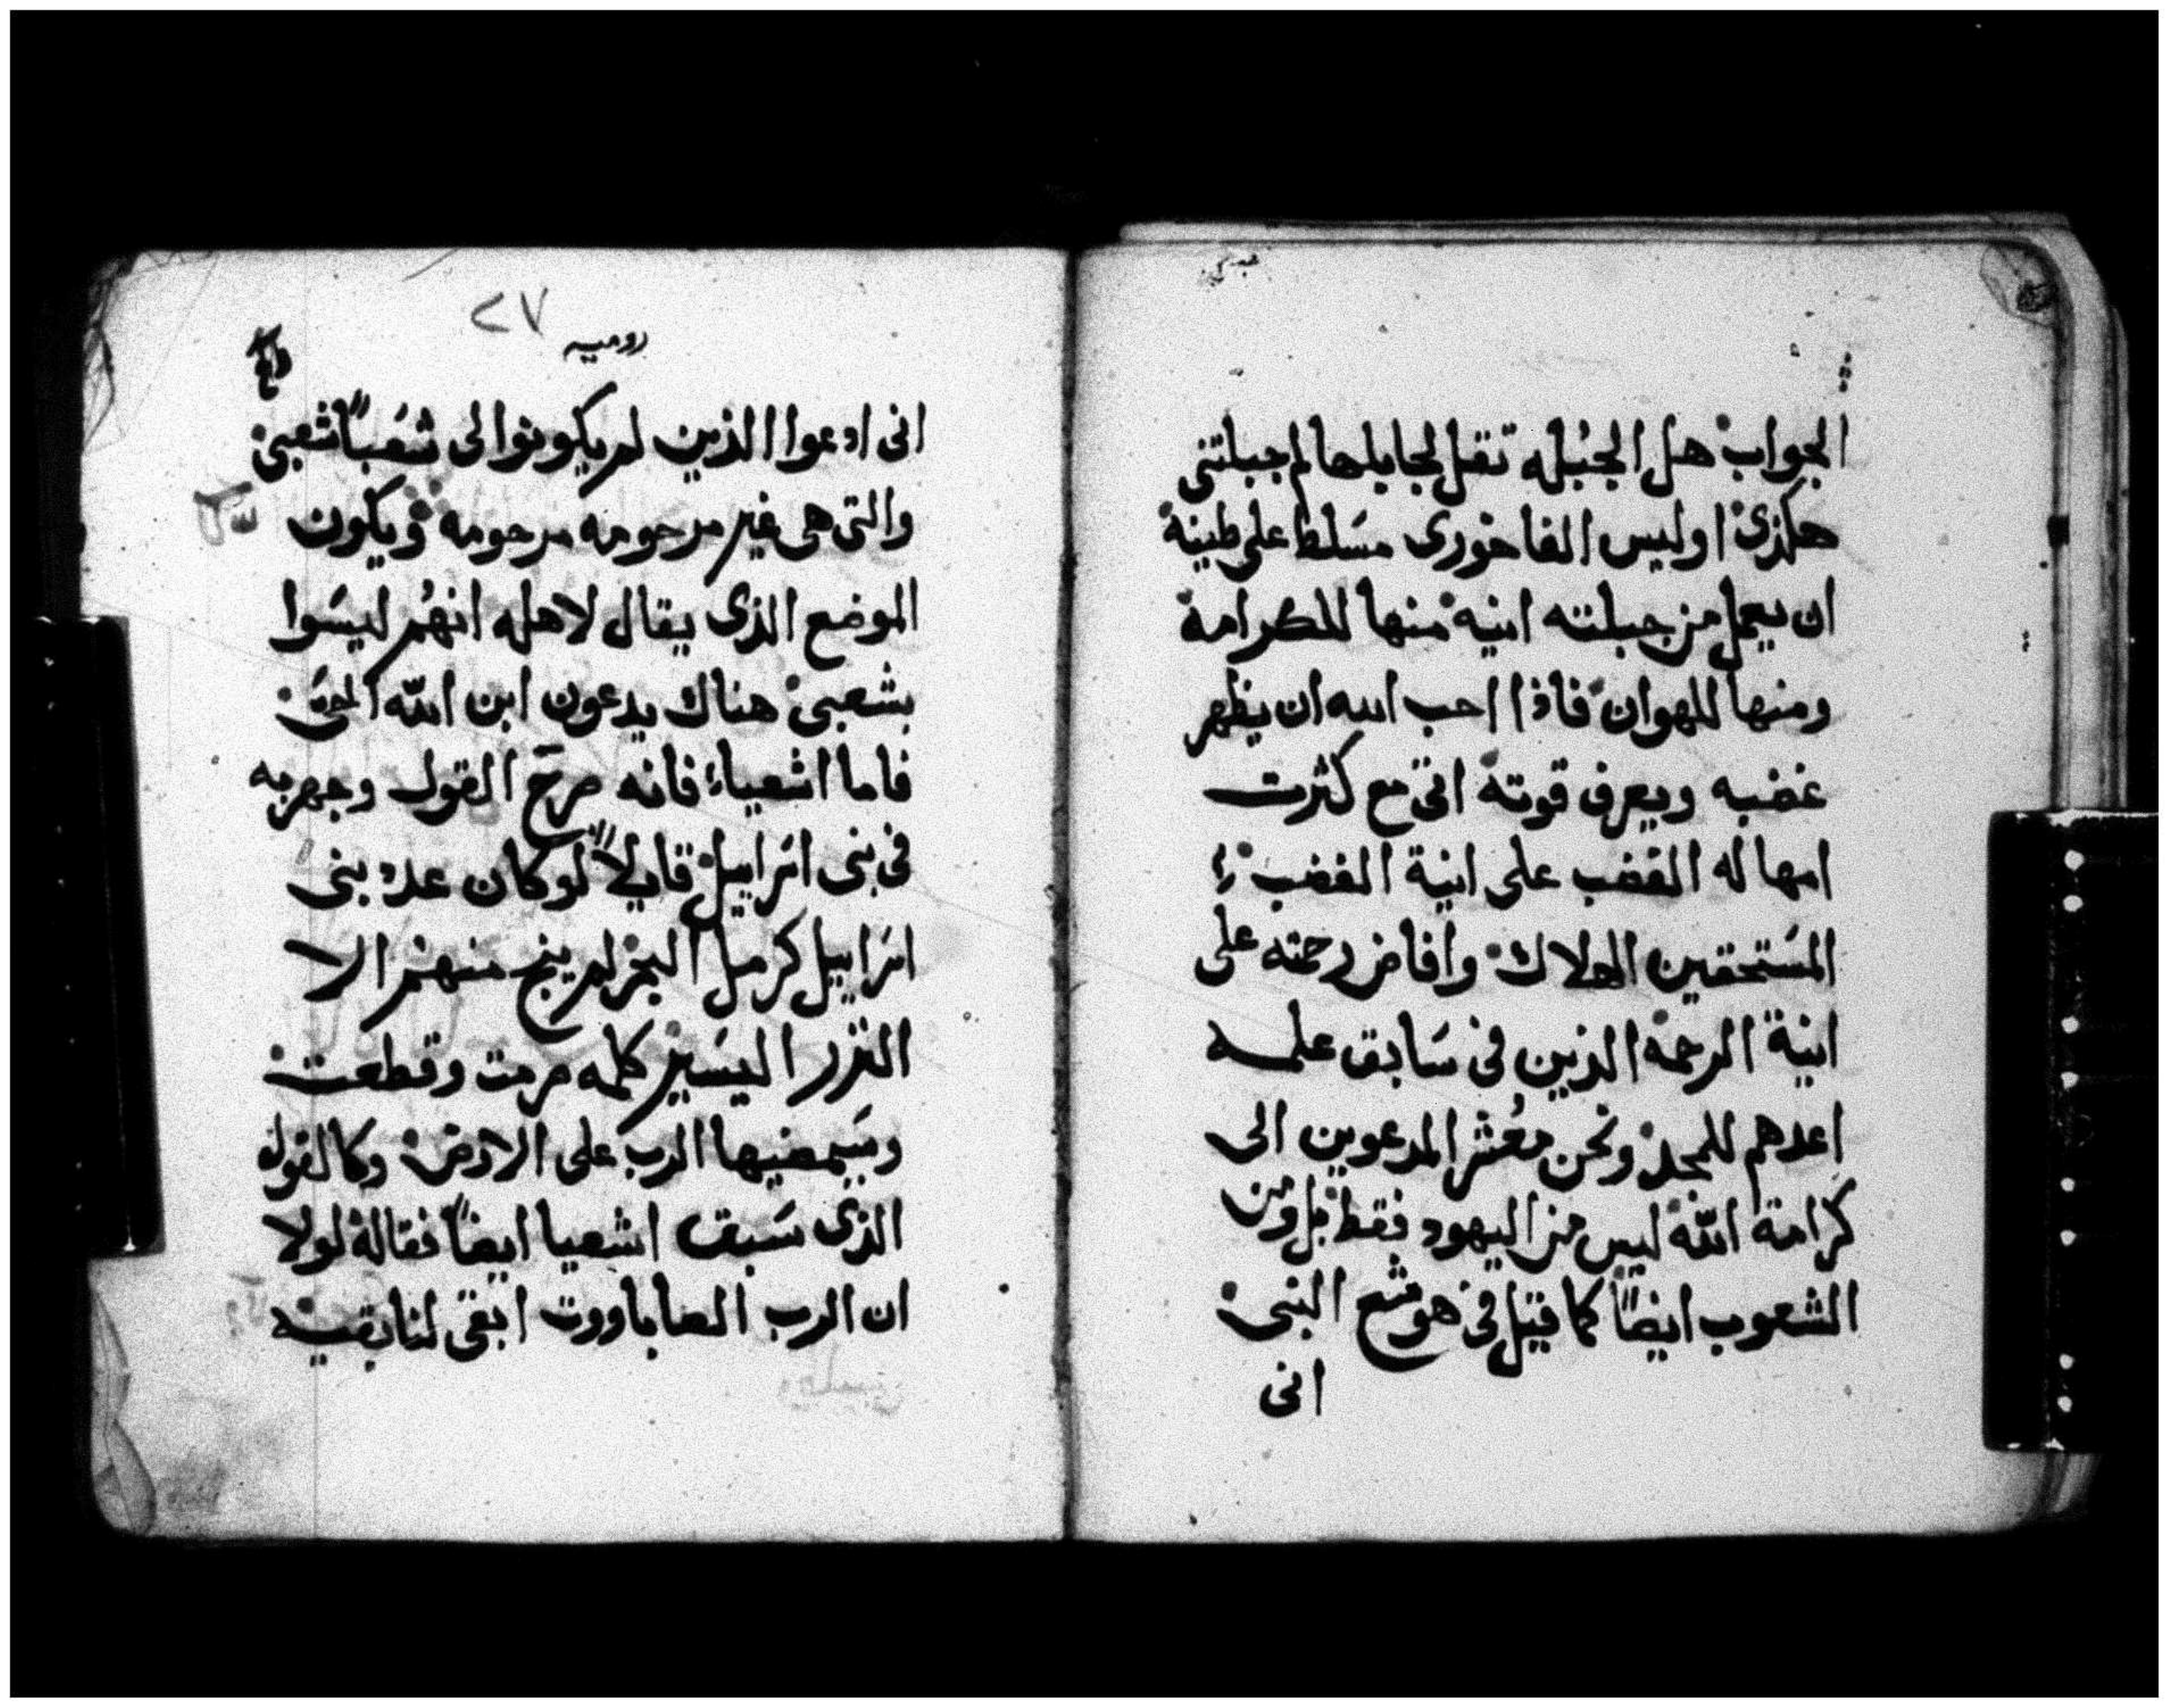 الجواب هل الجبله تقل لجابلها لم جبلتنى
هكذى اوليس الفاخورى مسَلط على طينة
ان يعمل من جبلته انية منها للكرامة
ومنها للهوان فاذا احب الله ان يظهر
غضبه ويعرف قوته اتى مع كثرت
امهاله الغضب على انية الغضب
المسَتحقين الهلاك وافاض رحمته على
انية الرحمة الذين فى سَابق علمه
اعدهم للمجد ونحن معُشر المدعوين الى
كرامة اللّه ليس من اليهود فقط بل ومن
الشعوب ايضاً كما قيل فى هوشع النبى
انى
٢٧
روميه
انى ادعوا الذين لم يكونوا لى شعَباً شعبى
والتى هى غير مرحومه مرحومه ويكون
الموضع الذى يقال لاهله انهُم ليسَوا
بشعبى هناك يدعون ابن اللّه الحىّ
فاما اشعياء فانه صرحَ القول وجهر به
فى بنى اسَراييل قايلاً لو كان عدد بنى
اسَراييل كرمل البحر لم ينج منهم الا
النزر اليسَير كلمه صرمت وقطعت
وسَيمضيها الرب على الارض وكالقول
الذى سَبق اشعيا ايضاً فقاله لولا
ان الرب الصاباووت ابقى لنا بقيه